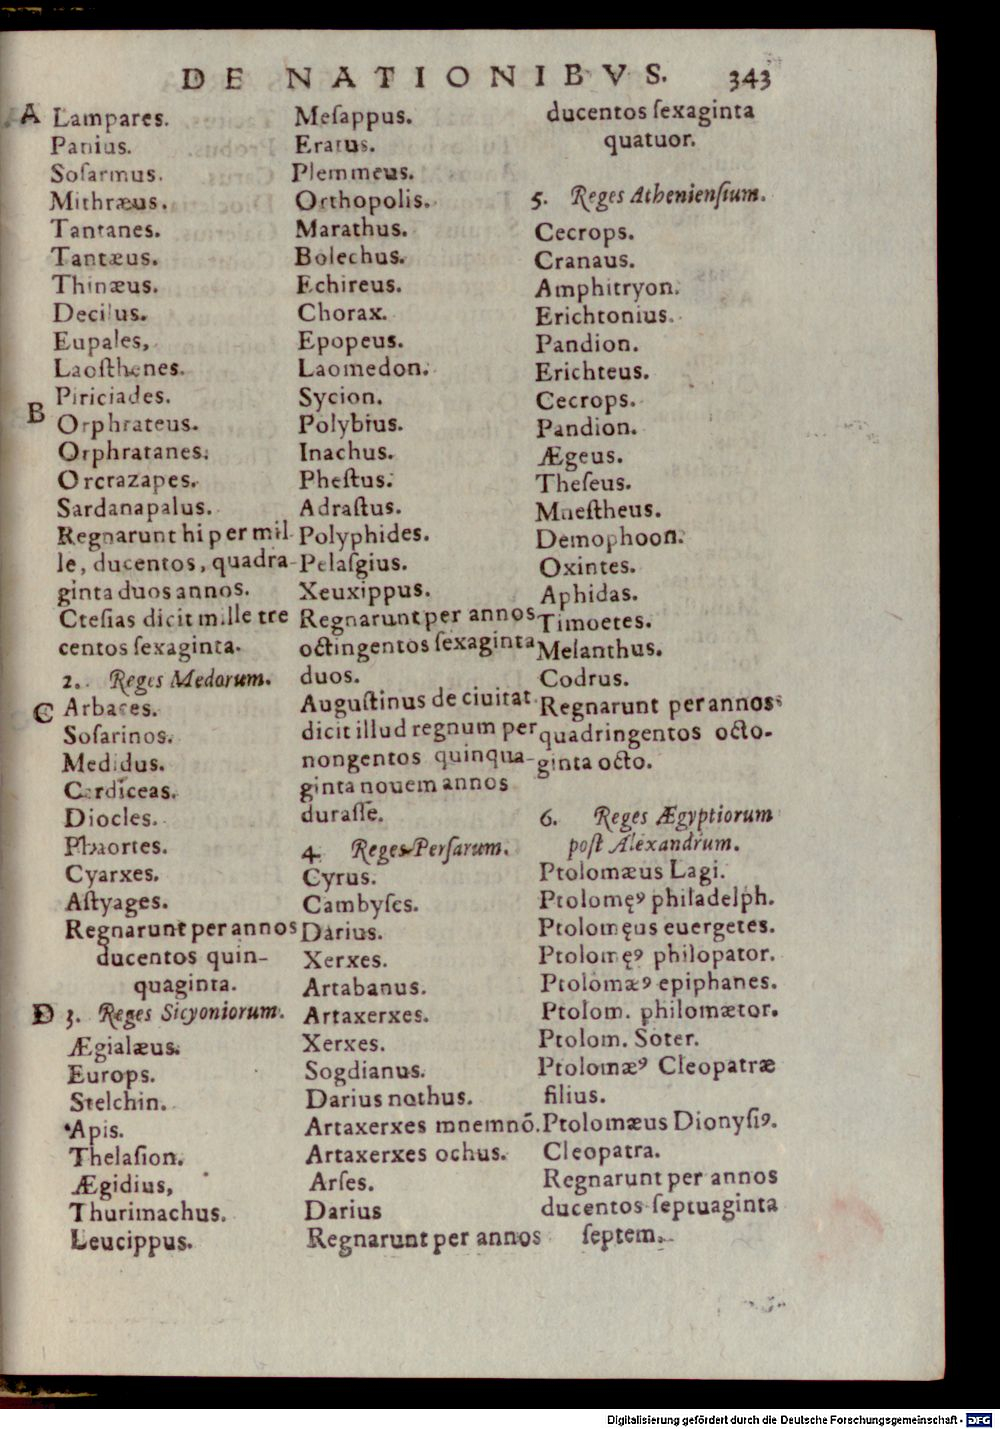 DE NATIONIBVS. 343
A Lampares.
Panius.
Soſarmus.
Mithræus.
Tantanes.
Tantæus.
Thinæus.
Decilus.
Eupales,
Laoſthenes.
Piriciades.
B
Orphrateus.
Orphratanes.
Orcrazapes.
Sardanapalus.
Regnarunt hi per mil-
le, ducentos, quadra-
ginta duos annos.
Cteſias dicit mille tre
centos ſexaginta.
2. Reges Medorum.
C Arbaces.
Soſarinos.
Medidus.
Cardiceas.
Diocles.
Phaortes.
Cyarxes.
Aſtyages.
Regnarunt per annos
ducentos quin-
quaginta.
D 3. Reges Sicyoniorum.
Ægialæus.
Europs.
Stelchin.
Apis.
Thelaſion.
Ægidius,
Thurimachus.
Leucippus.
Meſappus.
Eratus.
Plemmeus.
Orthopolis.
Marathus.
Bolechus.
Echireus.
Chorax.
Epopeus.
Laomedon.
Sycion.
Polybius.
Inachus.
Pheſtus.
Adraſtus.
Polyphides.
Pelaſgius.
Xeuxippus.
Regnarunt per annos
octingentos ſexaginta
duos.
Auguſtinus de ciuitat.
dicit illud regnum per
nongentos quinqua-
ginta nouem annos
duraſſe.
4. Reges Perſarum.
Cyrus.
Cambyſes.
Darius.
Xerxes.
Artabanus.
Artaxerxes.
Xerxes.
Sogdianus.
Darius nothus.
Artaxerxes mnemnō.
Artaxerxes ochus.
Arſes.
Darius
Regnarunt per annos
ducentos ſexaginta
quatuor.
5. Reges Athenienſium.
Cecrops.
Cranaus.
Amphitryon.
Erichtonius.
Pandion.
Erichteus.
Cecrops.
Pandion.
Ægeus.
Theſeus.
Mneſtheus.
Demophoon.
Oxintes.
Aphidas.
Timoetes.
Melanthus.
Codrus.
Regnarunt per annos
quadringentos octo-
ginta octo.
6. Reges Ægyptiorum
poſt Alexandrum.
Ptolomæus Lagi.
Ptolomęꝰ philadelph.
Ptolomęus euergetes.
Ptolomęꝰ philopator.
Ptolomæꝰ epiphanes.
Ptolom. philomætor.
Ptolom. Soter.
Ptolomæꝰ Cleopatræ
filius.
Ptolomæus Dionyſiꝰ.
Cleopatra.
Regnarunt per annos
ducentos ſeptuaginta
ſeptem.
Digitalisierung gefördert durch die Deutsche Forschungsgemeinschaft - DFG